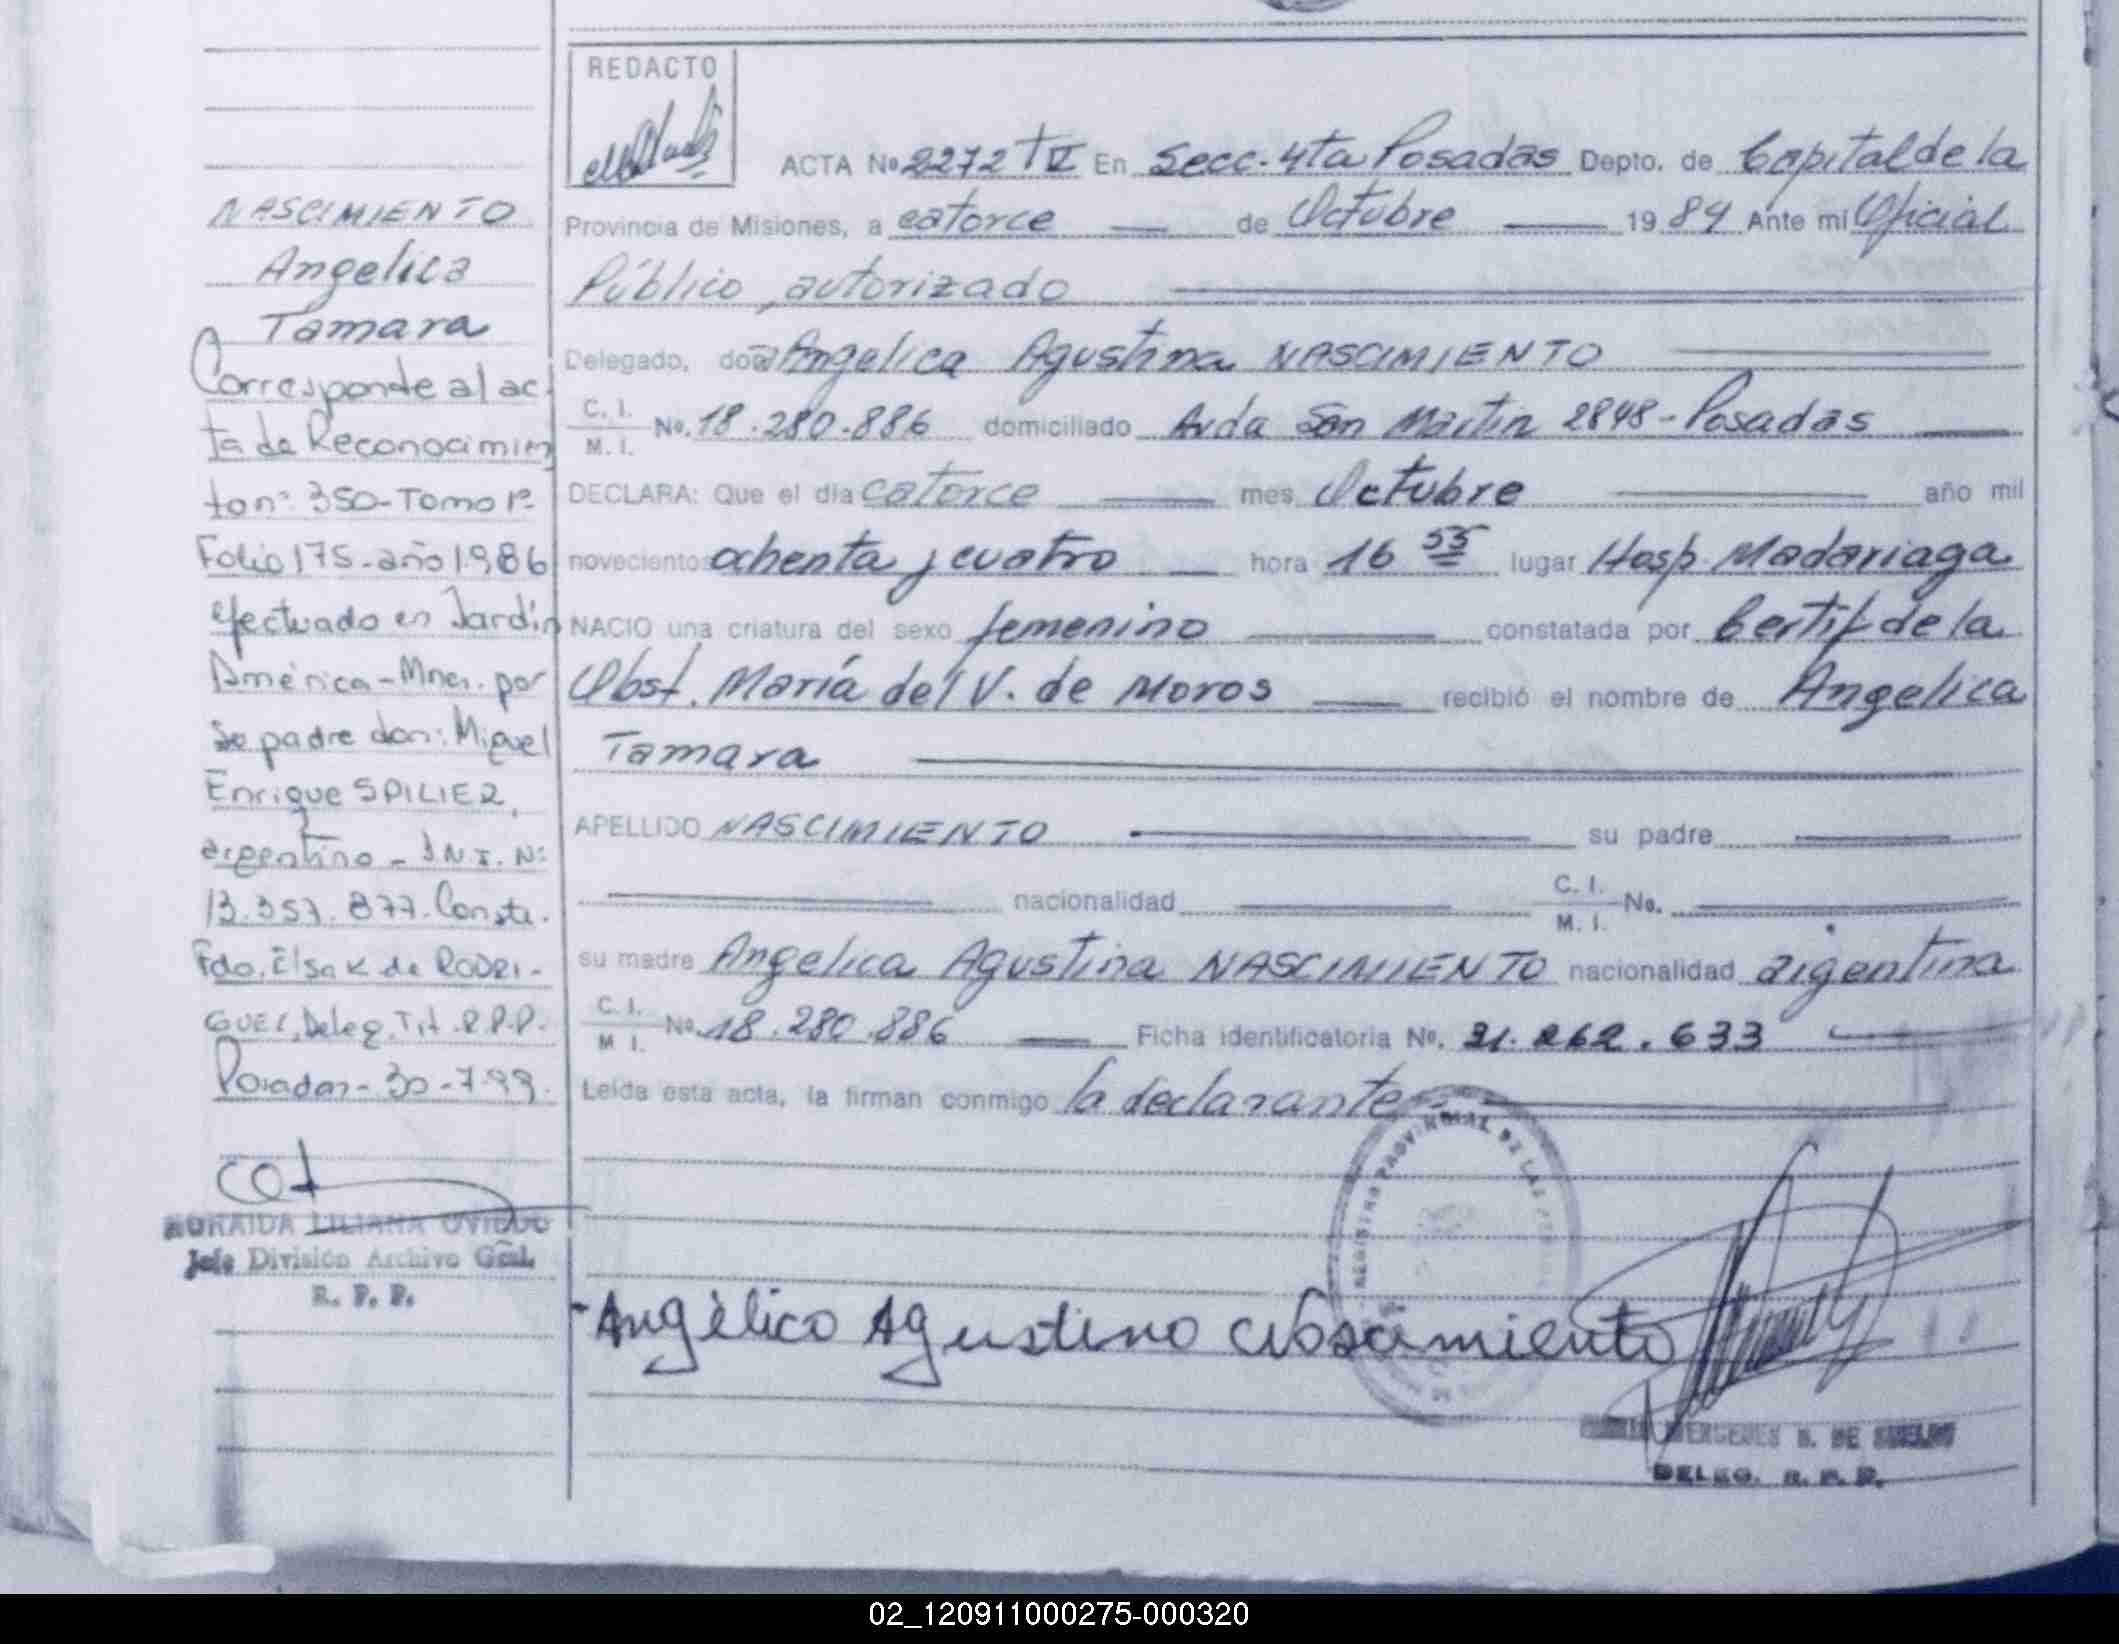 NASCIMIENTO
Angelica
Tamara
Corresponde al ac-
ta de Reconocimien
to nº: 350-Tomo 1º-
Folio 175-año 1.986
efectuado en Jardín
América-Mnes. por
Su padre don: Miguel
Enrique SPILIER,
argentino - D.N.I. Nº
13.357.877. Conste.
Fdo. Elsa K de RODRI-
GUEZ, Deleg. Tit. R.P.P.
Posadas-30-7-99.
LILIANA OVIEDO
Jefe División Archivo Gral.
R. P. P.
REDACTO
ACTA No 2272 T V En Secc. 4ta Posadas Depto. de Capital de la
Provincia de Misiones, a catorce de Octubre 1984 Ante mi Oficial
Público, autorizado
Delegado, doña Angelica Agustina NASCIMIENTO
C. I. M. I. No. 18.280.886 domiciliado Avda San Martin 2848-Posadas
DECLARA: Que el día catorce mes Octubre año mil
novecientos ochenta y cuatro hora 16 55 lugar Hosp. Madariaga
NACIO una criatura del sexo femenino constatada por Certif de la
Obst. María del V. de Moros recibió el nombre de Angelica
Tamara
APELLIDO NASCIMIENTO su padre
nacionalidad C. I. M. I. No.
su madre Angelica Agustina NASCIMIENTO nacionalidad argentina
C. I. M I. No. 18.280.886 Ficha identificatoria No. 31.262.633
Leída esta acta, la firman conmigo la declarante
REGISTRO PROVINCIAL DE LAS
Angélica Agustina Nascimiento
MERCEDES B. DE
DELEG. R. P. P.
02_120911000275-000320